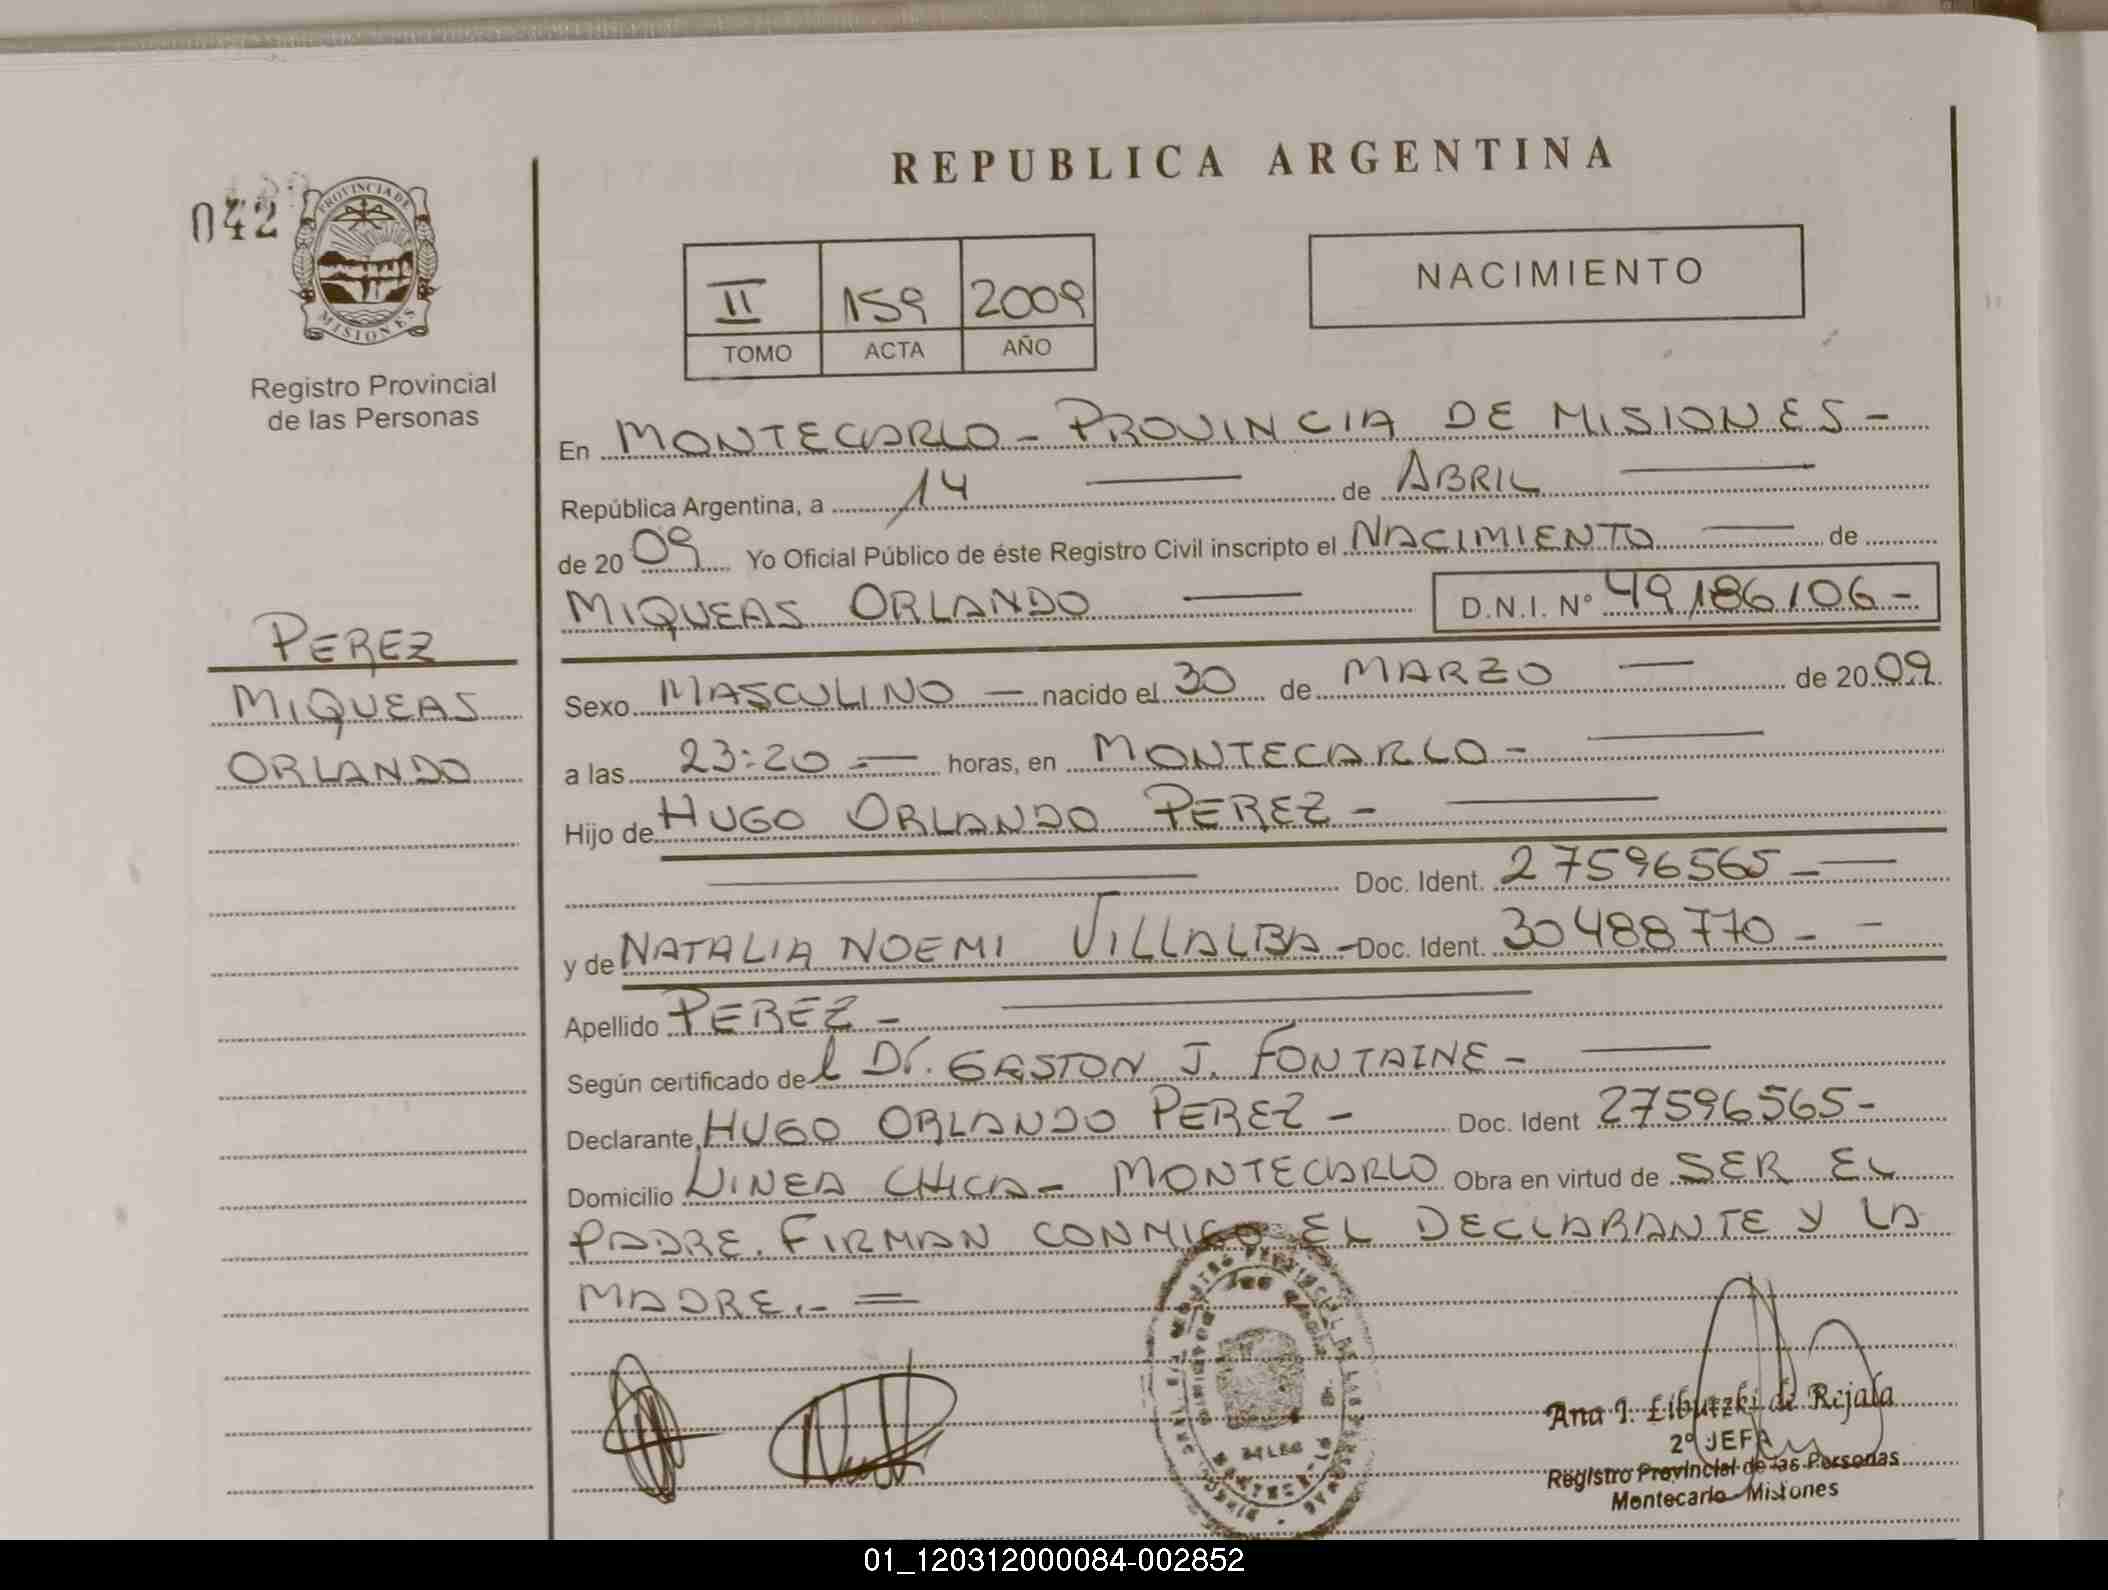 REPUBLICA ARGENTINA
042
PROVINCIA DE
MISIONES
Registro Provincial
de las Personas
II 159 2009
TOMO ACTA AÑO
NACIMIENTO
En MONTECARLO - PROVINCIA DE MISIONES -
República Argentina, a 14 de ABRIL
de 2009 Yo Oficial Público de éste Registro Civil inscripto el NACIMIENTO de
MIQUEAS ORLANDO D.N.I. Nº 49.186.106 -
PEREZ
MIQUEAS
ORLANDO
Sexo MASCULINO - nacido el 30 de MARZO de 2009
a las 23:20 horas, en MONTECARLO -
Hijo de HUGO ORLANDO PEREZ -
Doc. Ident. 27596565 -
y de NATALIA NOEMI VILLALBA - Doc. Ident. 30488770 -
Apellido PEREZ -
Según certificado del Dr. GASTON J. FONTAINE -
Declarante HUGO ORLANDO PEREZ - Doc. Ident 27596565 -
Domicilio LINEA CHICA - MONTECARLO Obra en virtud de SER EL
PADRE. FIRMAN CONMIGO EL DECLARANTE Y LA
MADRE.-
Ana I. Libutzki de Rejala
2º JEFA
Registro Provincial de las Personas
Montecarlo - Misiones
01_120312000084-002852